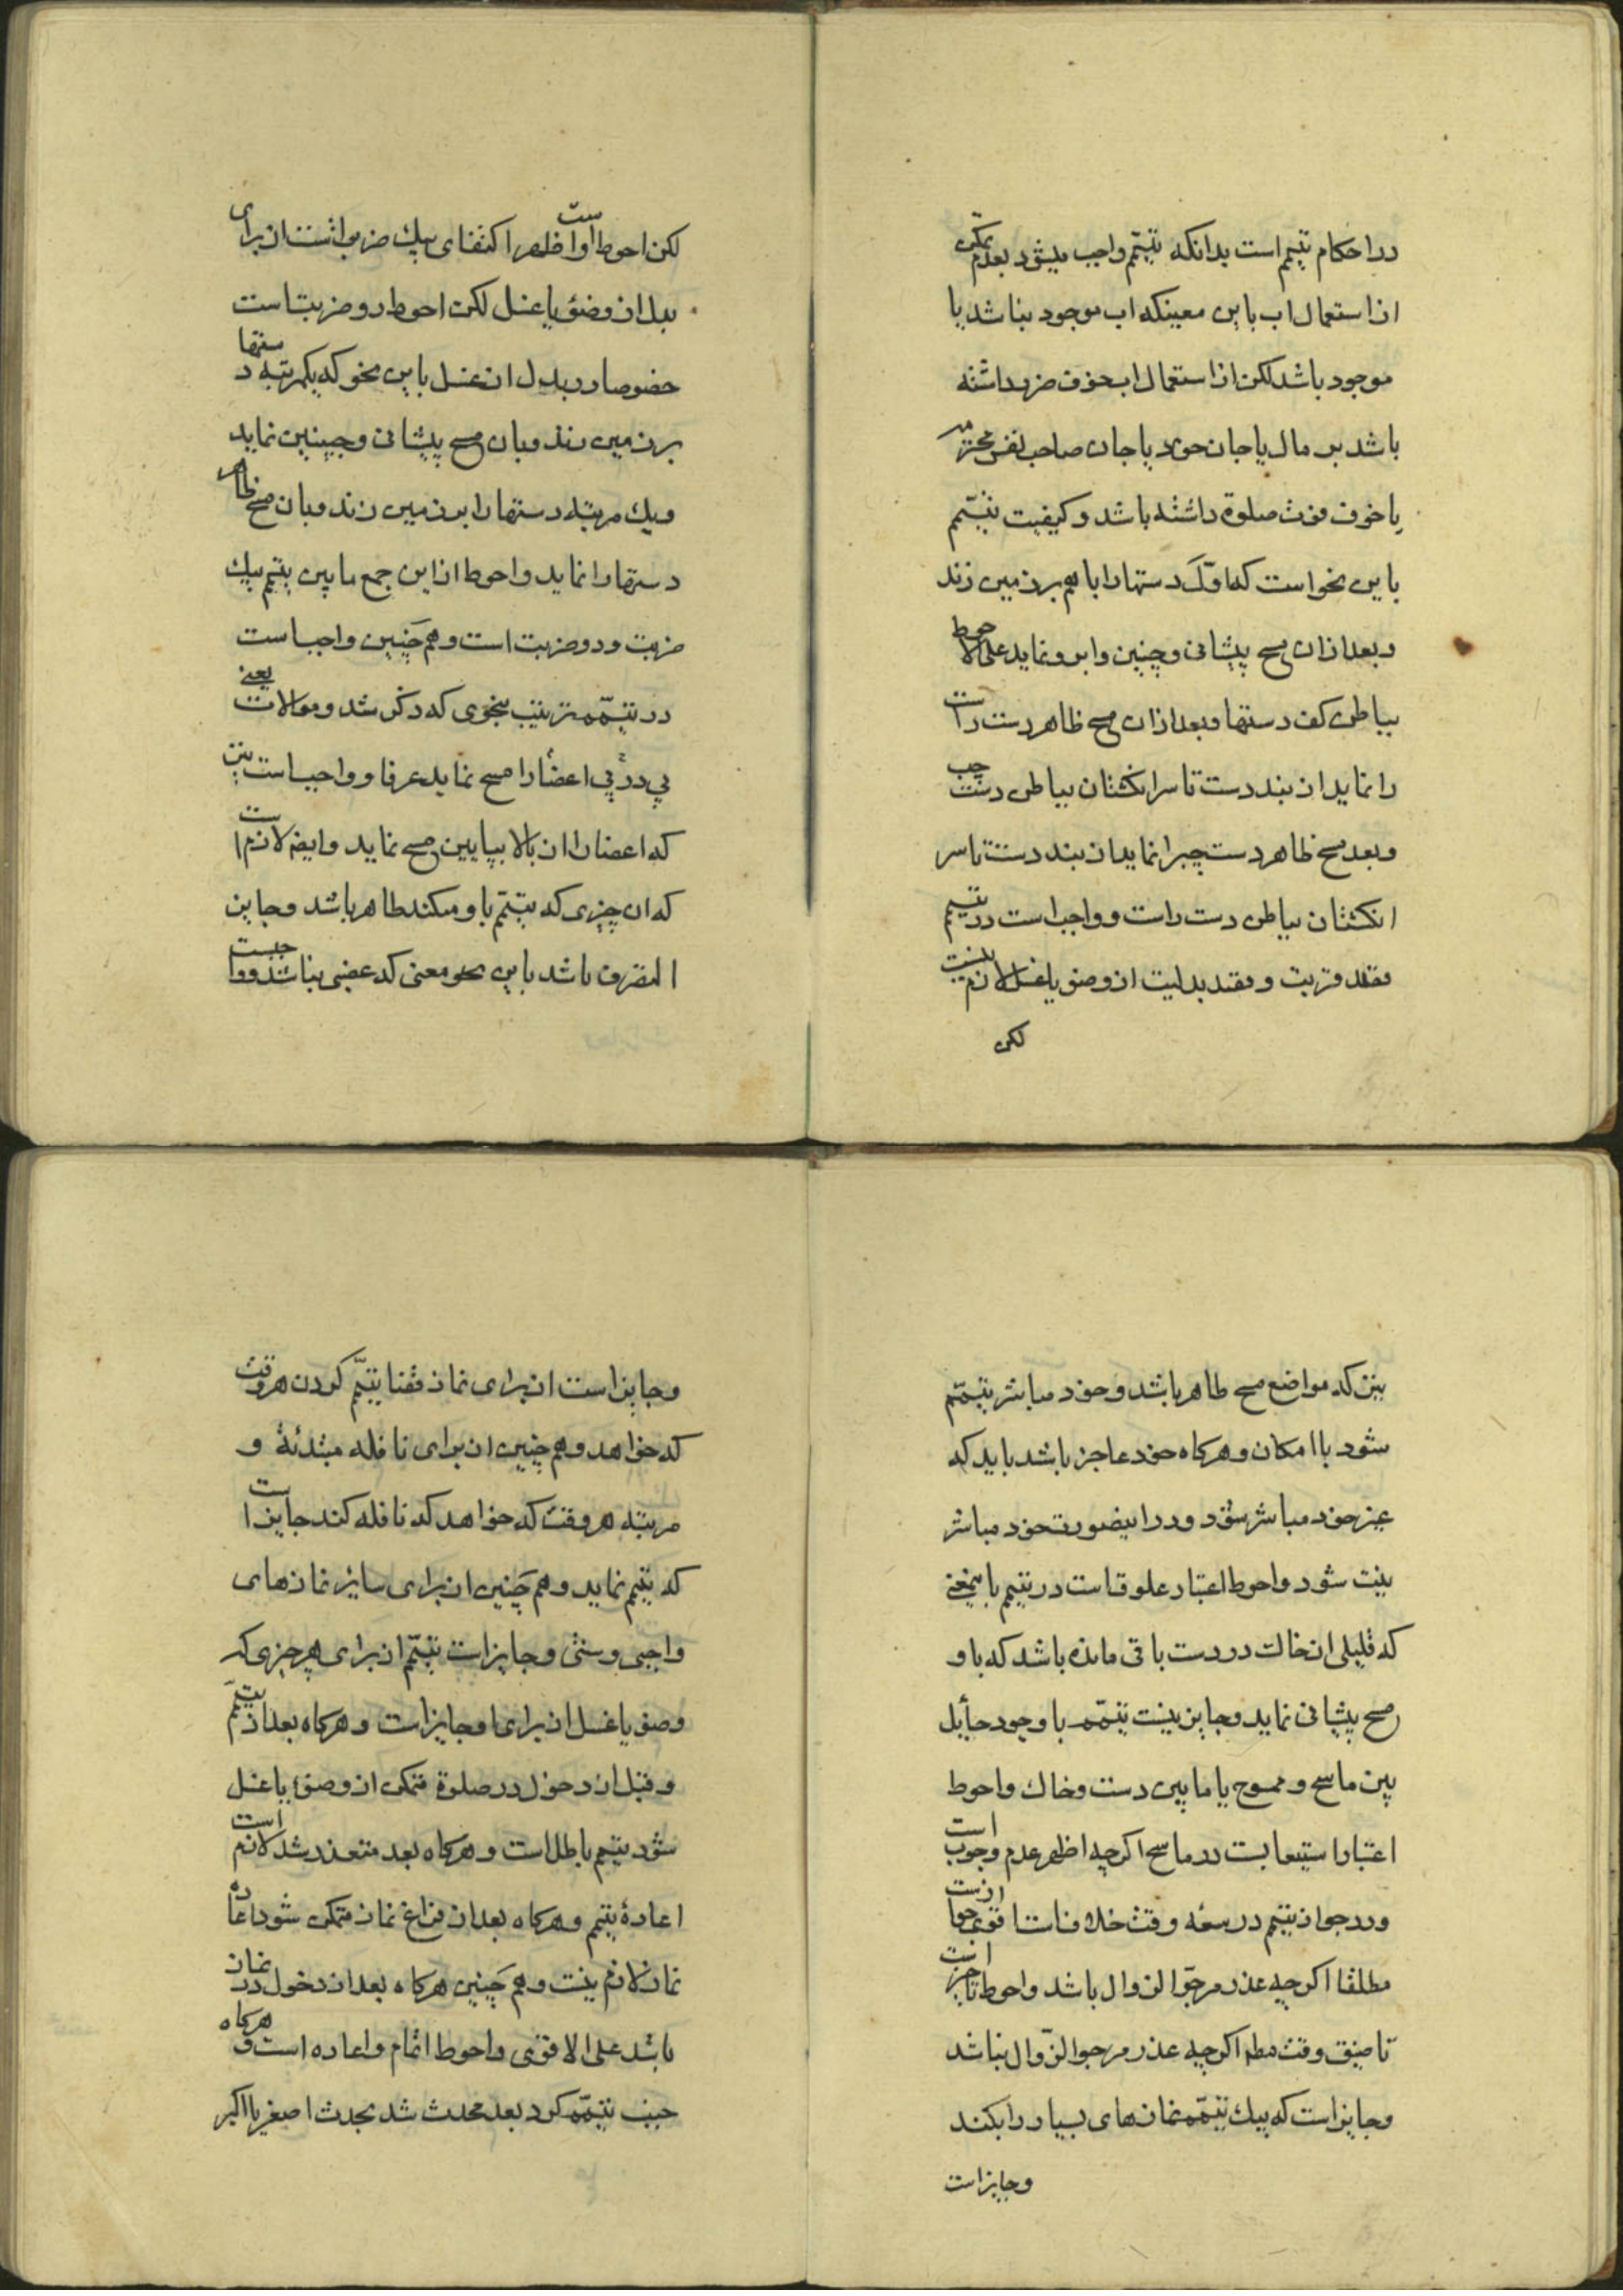 در احکام تیمم است بدانکه تیمّم واجب میشود بعدم تمکّن
از استعمال اب باین معنیکه اب موجود نباشد یا
موجود باشد لکن از استعمال اب خوف ضرر داشته
باشد بر مال یا جان خود یا جان صاحب نفس محترمه
یا خوف فوت صلوة داشته باشد و کیفیت تیمّم
باین نحو است که اوّلَ دستها را با هم بر زمین زند
و بعد از ان مسح پیشانی و جبین و ابرو نماید علی الاحوط
بباطن کف دستها و بعد از ان مسح ظاهر دست راست
را نماید از بند دست تا سر انکشتان بباطن دست چپ
و بعد مسح ظاهر دست چپرا نماید از بند دست تا سر
انکشتان بباطن دست راست و واجب است در تیمم
قصد قربت و قصد بدلیت از وضو یا غسل لازم نیست
لکن
لکن احوط است و اظهر اکتفای بیک ضربه است از برای
بدل از وضوء یا غسل لکن احوط دو ضربت است
خصوصا در بدل از غسل باین نحو که یکمرتبه دستها
بر زمین زند و بان مسح پیشانی و جبینین نماید
و یك مرتبه دستها را بر زمین زند و بان مسح ظاهر
دستها را نماید و احوط از این جمع مابین تیمم بیك
ضربت و دو ضربت است و همچَنین واجب است
در تیمّمه ترتیب بنحوی که ذکر شد و موالات یعنی
پی در پی اعضأ را مسح نماید عرفا و واجب است نیز
که اعضا را از بالا بپایین مسح نماید و ایضا لازم است
که ان چیزی که تیمّم باو میکند طاهر باشد و جایز
التصرف باشد باین نحو معنی که غصبی نباشد و واجبست
نیز که مواضع مسح طاهر باشد و خود مباشر تیمّم
شود با امکان و هرکاه خود عاجز باشد باید که
غیر خود مباشر شود و در اینصورت خود مباشر
نیت شود و احوط اعتبار علوق است در تیمم باینمعنی
که قلیلی از خاك در دست باقی مانده باشد که باو
مسح پیشانی نماید و جایز نیست تیمّمه با وجود حأیل
بین ماسح و ممسوح یا مابین دست و خاك و احوط
اعتبار استیعابست در ماسح اکرچه اظهر عدم وجوب است
و در جواز تیمم در سعه وقت خلاف است اقوی جواز است
مطلقا اکرچه عذر مرجوّ الزوال باشد و احوط تاخیر است
تا ضیق وقت مطم اکرچه عذر مرجو الزّوال نباشد
و جایز است که بیك تیمّمه نمازهای بسیار را بکند
و جایز است
و جایز است از برای نماز قضا تیمّم کردن هر وقت
که خواهد و همچنین از برای نافله مبتدئهٔ و
مرتبه هر وقت که خواهد که نافله کند جایز است
که تیمم نماید و همچَنین از برای سائر نمازهای
واجبی و سنتی و جایز است تیمّم از برای هر چیزی که
وضو یا غسل از برای او جایز است و هرکاه بعد از تیمّم
و قبل از دخول در صلوة متمکن از وضوء یا غسل
شود تیمم باطل است و هرکاه بعد متعذر شد لازم است
اعادهٔ تیمم و هرکاه بعد از فراغ نماز متمکن شود اعاده
نماز لازم نیست و همچَنین هرکاه بعد از دخول در نماز
باشد علی الاقوی و احوط اتمام و اعاده است و هرکاه
جنب تیمّمه کرد بعد محدث شد بحدث اصغر یا اکبر